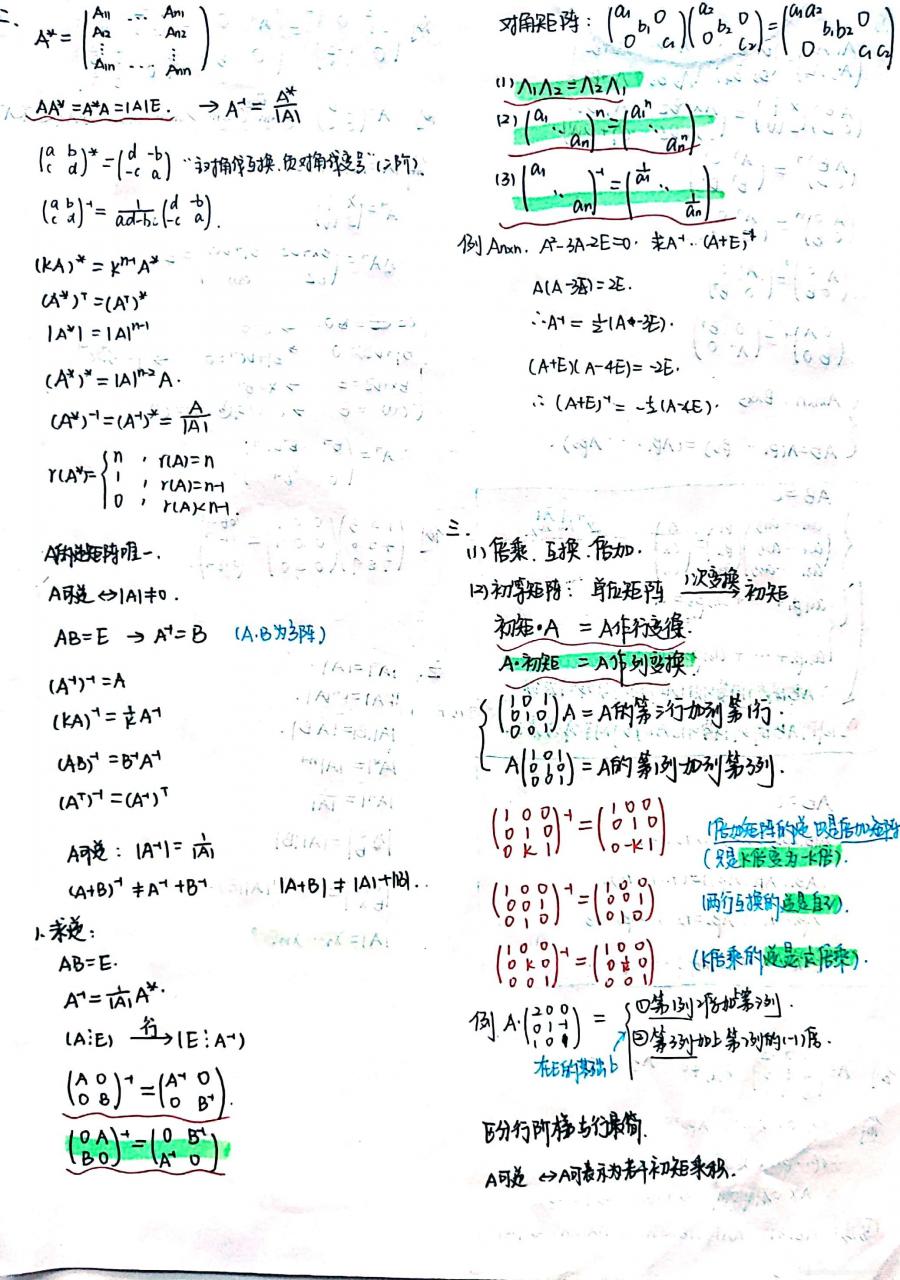 二、
A* = (A₁₁ … Aₙ₁
A₁₂ … Aₙ₂
⋮ ⋮
A₁ₙ … Aₙₙ)
AA* = A*A = |A|E. → A⁻¹ = A*/|A|
(a b; c d)* = (d -b; -c a) "主对角线互换,负对角线变号"(二阶)
(a b; c d)⁻¹ = 1/(ad-bc) (d -b; -c a).
(KA)* = Kⁿ⁻¹A*
(A*)ᵀ = (Aᵀ)*
|A*| = |A|ⁿ⁻¹
(A*)* = |A|ⁿ⁻²A.
(A*)⁻¹ = (A⁻¹)* = A/|A|
r(A*) = { n , r(A)=n
1 , r(A)=n-1
0 , r(A)<n-1.
A的逆矩阵唯一.
A可逆 ⇔ |A|≠0.
AB=E → A⁻¹=B (A.B为方阵)
(A⁻¹)⁻¹=A
(KA)⁻¹ = 1/K A⁻¹
(AB)⁻¹ = B⁻¹A⁻¹
(Aᵀ)⁻¹ = (A⁻¹)ᵀ
A可逆: |A⁻¹| = 1/|A|
(A+B)⁻¹ ≠ A⁻¹+B⁻¹ |A+B| ≠ |A|+|B|..
1. 求逆:
AB=E.
A⁻¹ = 1/|A| A*.
(A⋮E) 行→ (E⋮A⁻¹)
(A 0; 0 B)⁻¹ = (A⁻¹ 0; 0 B⁻¹).
(0 A; B 0)⁻¹ = (0 B⁻¹; A⁻¹ 0)
对角矩阵: (a₁ 0; b₁; 0 c₁)(a₂ 0; b₂; 0 c₂) = (a₁a₂ 0; b₁b₂; 0 c₁c₂)
(1) Λ₁Λ₂=Λ₂Λ₁
(2) (a₁ ⋱ aₙ)ⁿ = (a₁ⁿ ⋱ aₙⁿ)
(3) (a₁ ⋱ aₙ)⁻¹ = (1/a₁ ⋱ 1/aₙ)
例 Aₙₓₙ. A²-3A-2E=0. 求A⁻¹. (A+E)⁻¹
A(A-3E)=2E.
∴A⁻¹ = ½(A-3E).
(A+E)(A-4E)=-2E.
∴ (A+E)⁻¹ = -½(A-4E).
三.
(1) 倍乘. 互换. 倍加.
(2) 初等矩阵: 单位矩阵 1次变换→ 初矩.
初矩·A = A作行变换.
A·初矩 = A作列变换.
{ (1 0 1; 0 1 0; 0 0 1)A = A的第三行加到第1行.
A(1 0 1; 0 1 0; 0 0 1) = A的第1列加到第3列.
(1 0 0; 0 1 0; 0 K 1)⁻¹ = (1 0 0; 0 1 0; 0 -K 1) (倍加矩阵的逆只是倍加矩阵
(只是K倍变为-K倍).
(1 0 0; 0 0 1; 0 1 0)⁻¹ = (1 0 0; 0 0 1; 0 1 0) (两行互换的逆是自己).
(1 0 0; 0 K 0; 0 0 1)⁻¹ = (1 0 0; 0 1/K 0; 0 0 1) (K倍乘的逆是1/K倍乘).
例 A·(2 0 0; 0 1 -1; 1 0 1) = { ①第1列2倍加第3列.
②第3列加上第2列的(-1)倍.
在E的基础上
区分行阶梯与行最简.
A可逆 ⇔ A可表示为若干初矩乘积.